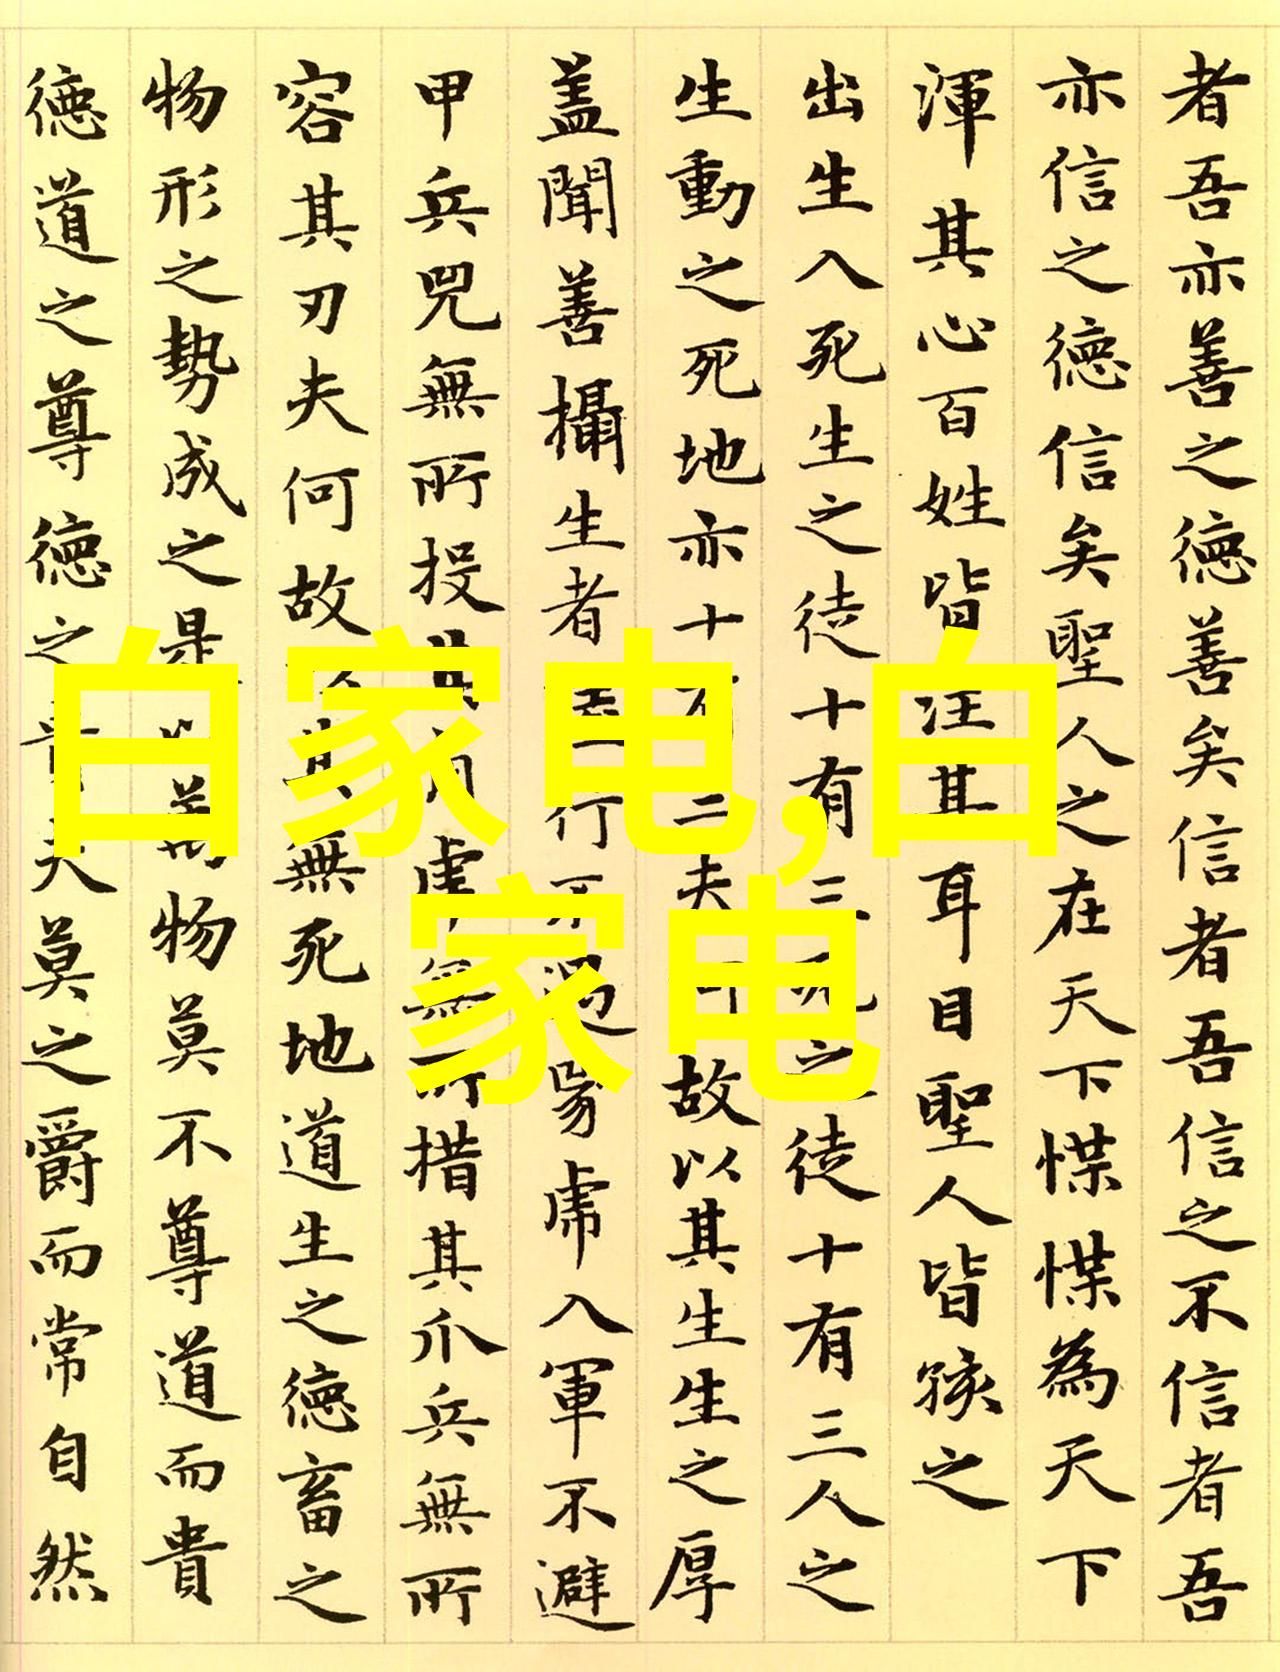 者吾亦善之德善矣信者吾信之不信者吾
亦信之德信矣聖人之在天下惵惵為天下
渾其心百姓皆注其耳目聖人皆孩之
出生入死生之徒十有三死之徒十有三人之
生動之死地亦十有三夫何故以其生生之厚
盖聞善攝生者陸行不遇兕虎入軍不避
甲兵兕無所投其角虎無所措其爪兵無所
容其刃夫何故以其無死地道生之德畜之
物形之勢成之是以萬物莫不尊道而貴
德道之尊德之貴夫莫之爵而常自然
白家电,白
家电